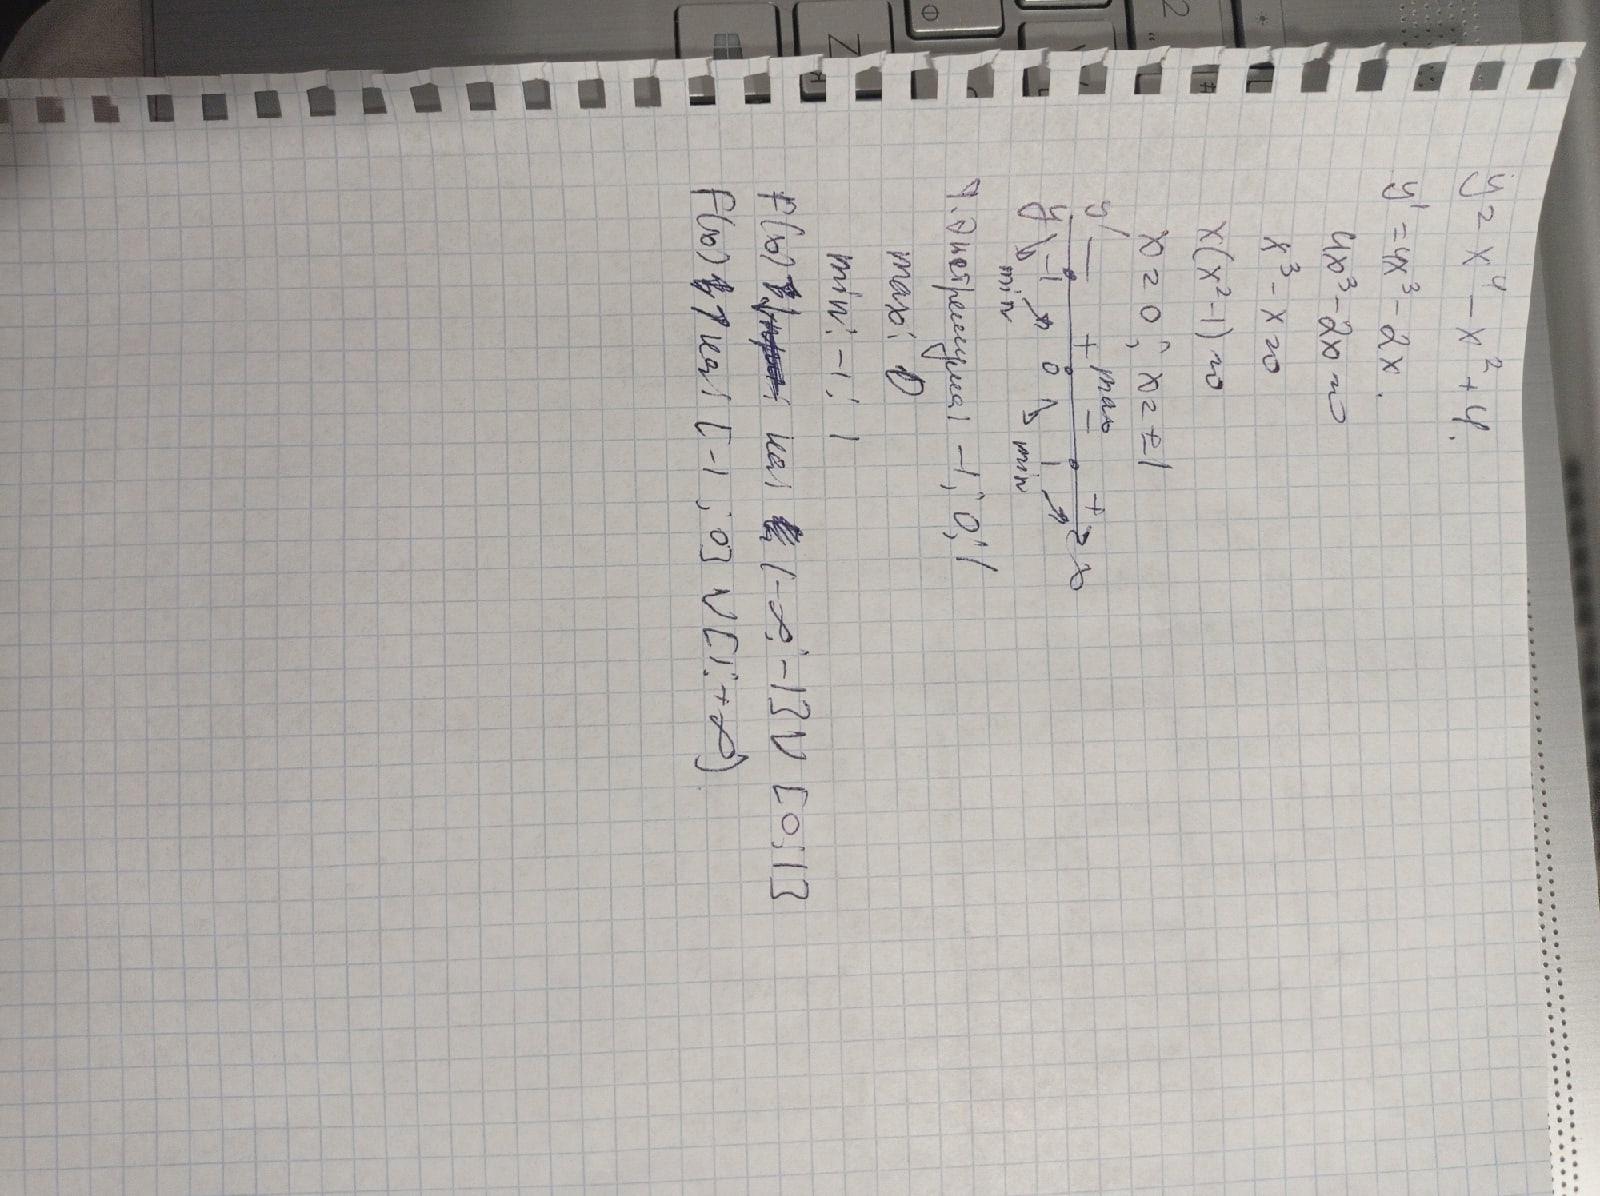 y = x⁴ - x² + 4.
y' = 4x³ - 2x.
4x³ - 2x = 0
x³ - x = 0
x(x² - 1) = 0
x = 0; x = ±1
y' — + max — +
-1 0 1 x
y min min
т. экстремума -1; 0; 1
max: 0
min: -1; 1
f(x) на (-∞; -1] ∪ [0; 1]
f(x) ↑ на [-1; 0] ∪ [1; +∞)